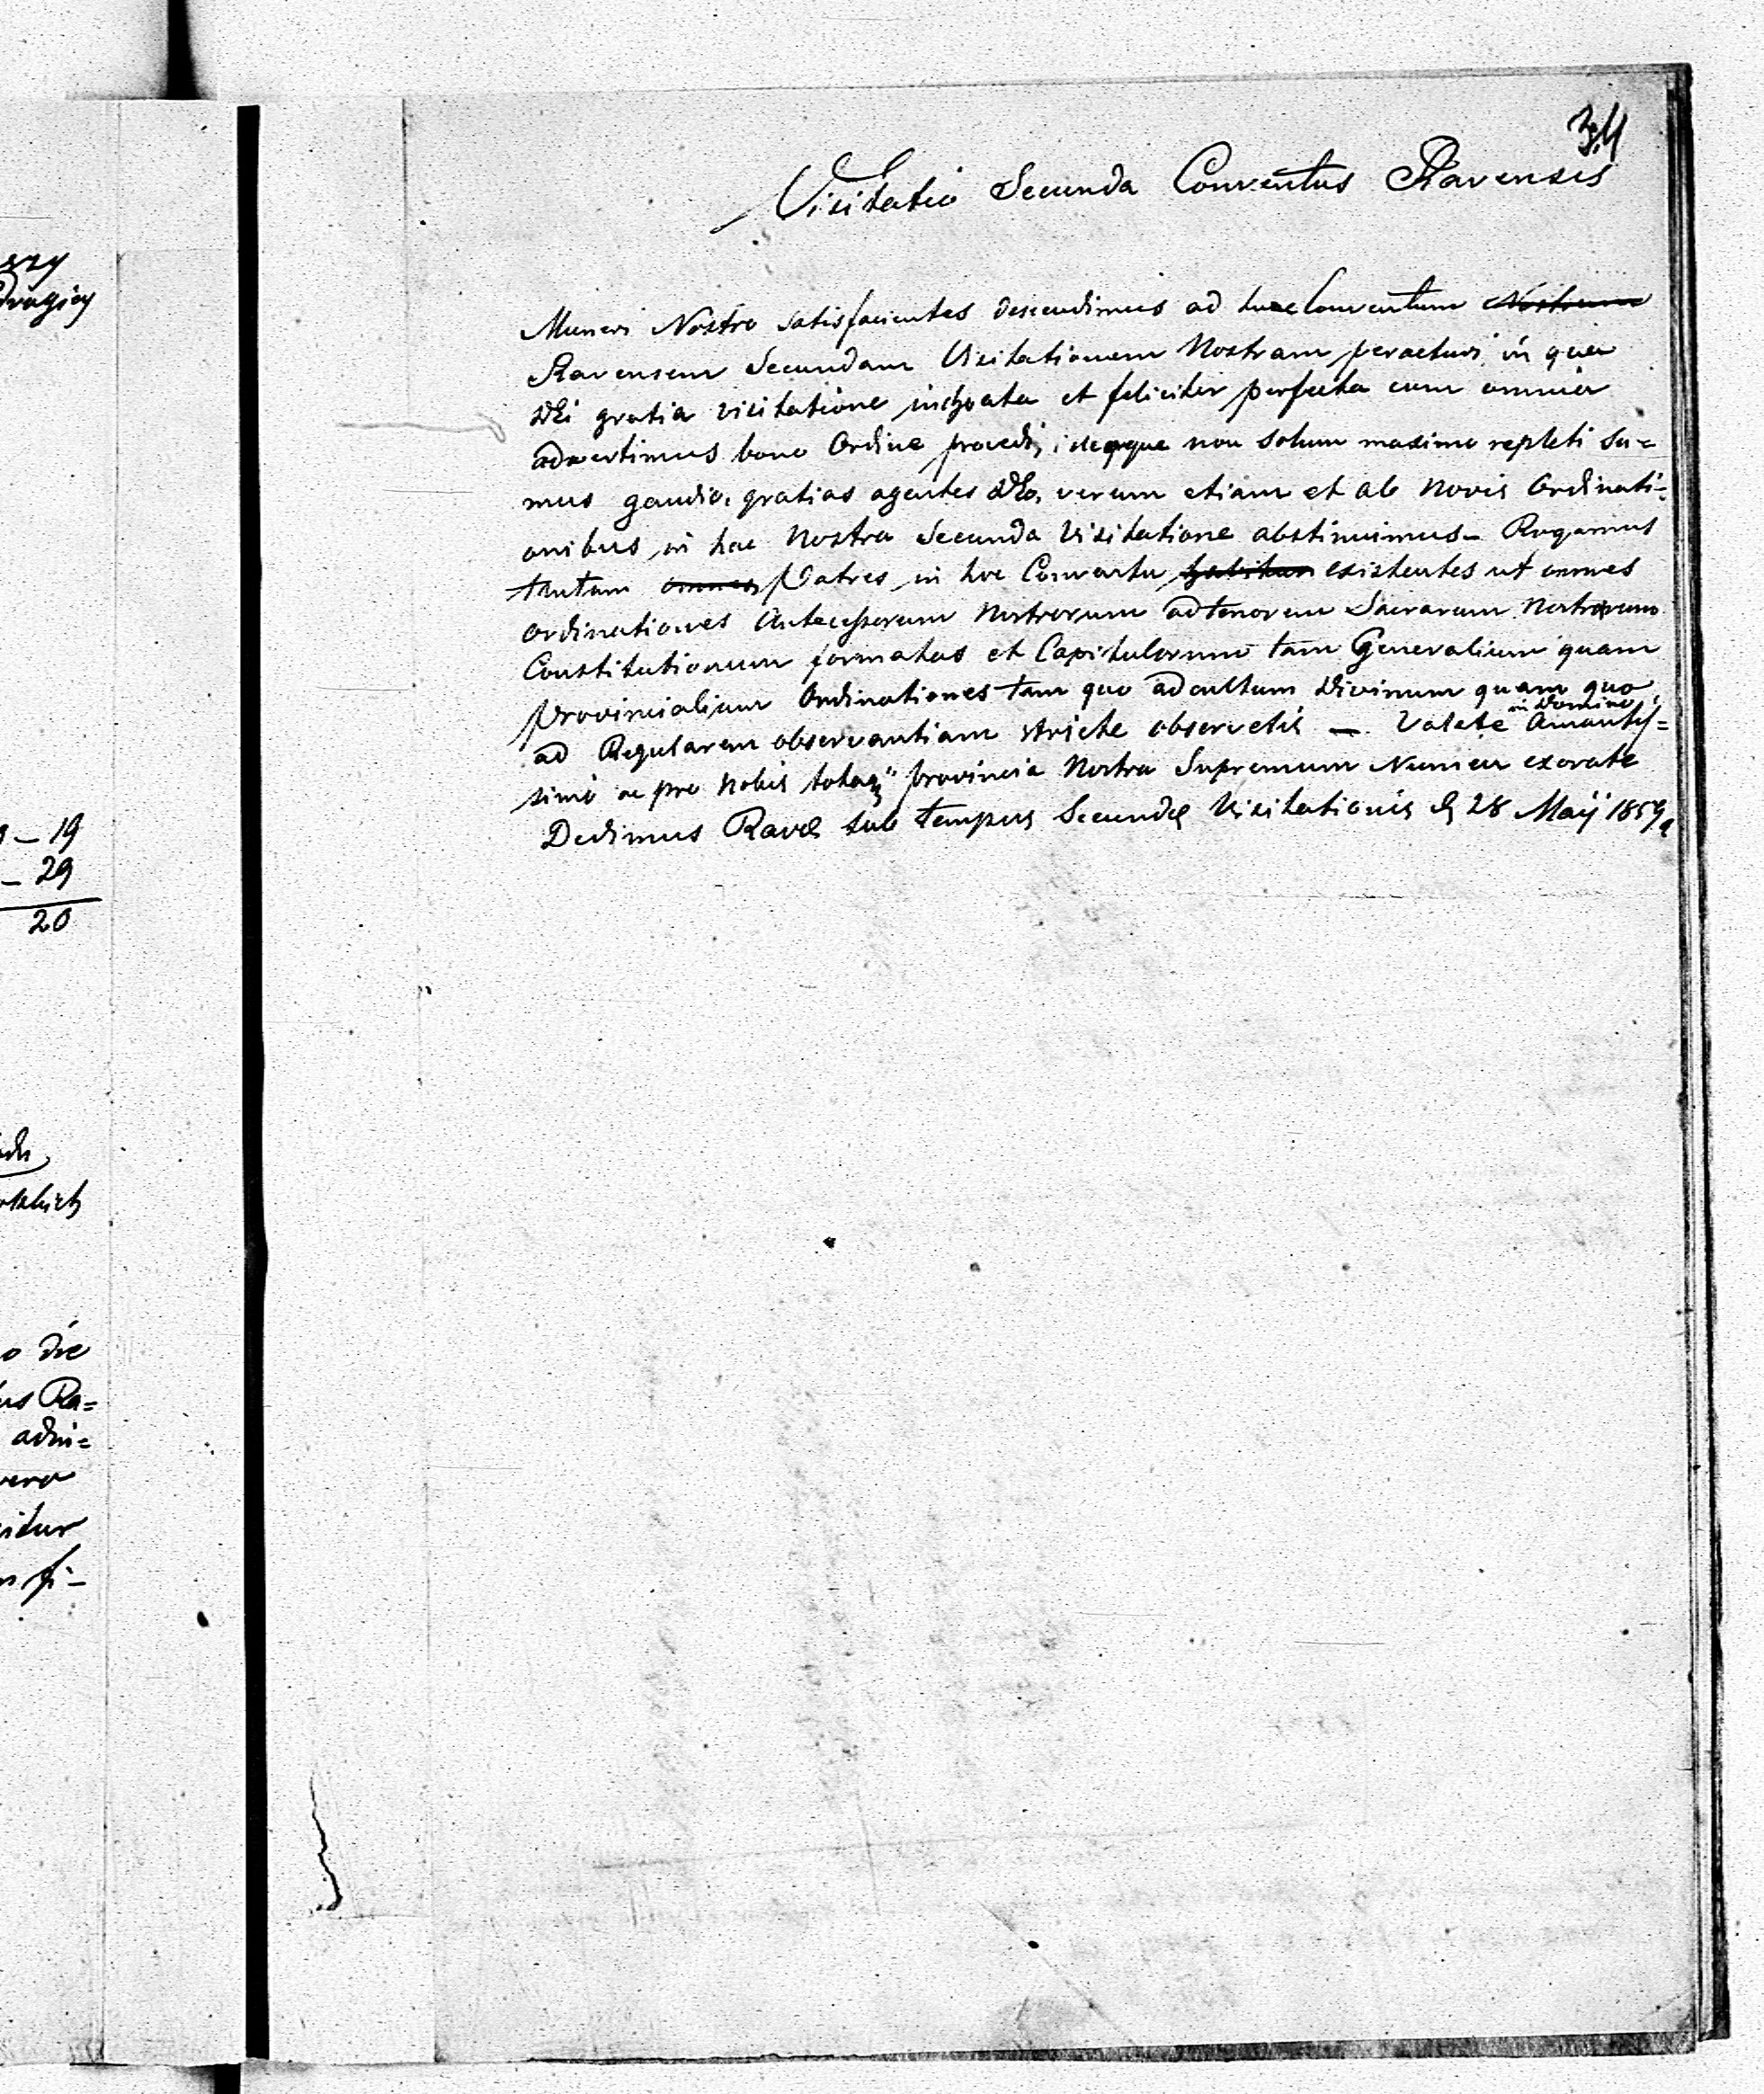 szy
19
29
20
o die
us Ra=
adm=
vero
34
Visitatio Secunda Conventus Ravensis
Muneri Nostro satisfacientes descendimus ad hunc Conventum Nostrum
Ravensem Secundam Visitationem Nostram peracturi, in qua
DEi gratia visitatione inchoata et feliciter perfecta cum omnia
advertimus bono Ordine procedi, ideoque non solum maximo repleti su=
mus gaudio, gratias agentes DEo, verum etiam et ab novis Ordinati=
onibus in hac Nostra Secunda Visitatione abstinuimus – Rogamus
tantum omnes Patres in hoc Conventu existentes ut omnes
ordinationes Antecessorum Nostrorum ad tenorem Sacrarum Nostrarum
Constitutionum formatas et Capitulorum tam Generalium quam
Provincialium Ordinationes tam quo ad cultum Divinum quam quo
ad Regularem observantiam stricte observetis – Valete in Domino Amantis=
simi ac pro Nobis totaq Provincia Nostra Supremum Numen exorate
Dedimus Ravæ sub tempus Secundæ Visitationis d 28 Maij 1859